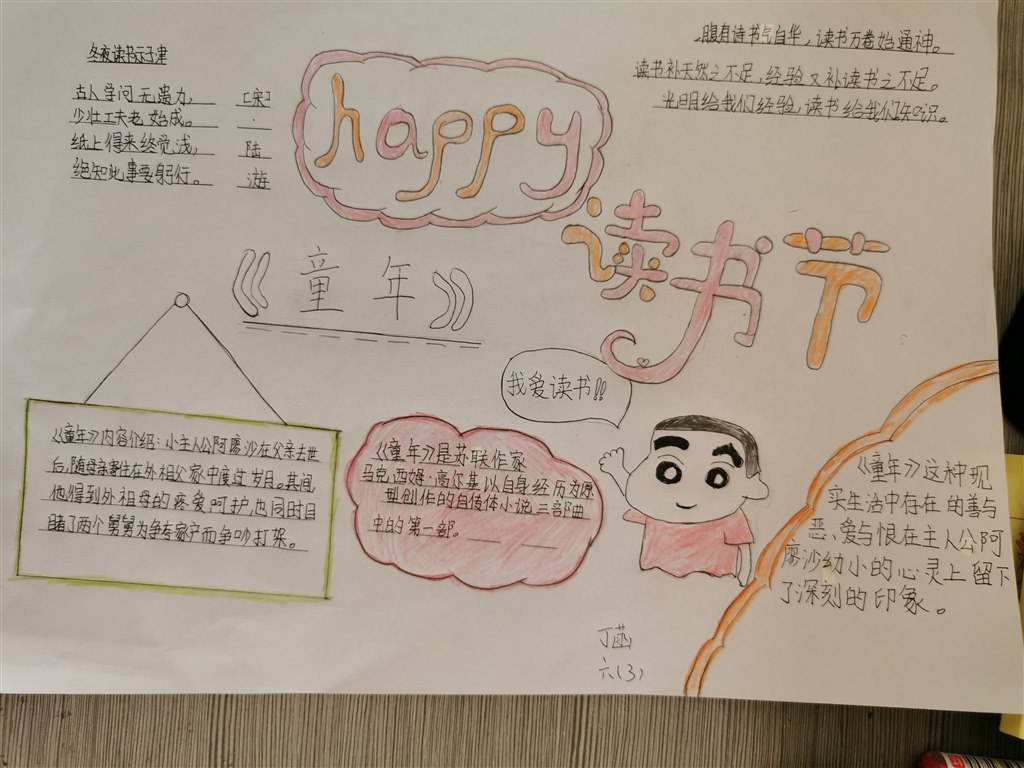 冬夜读书示子聿
古人学问无遗力,
少壮工夫老始成。
纸上得来终觉浅,
绝知此事要躬行。
[宋]
·
陆
游
happy
读书节
腹有诗书气自华,读书万卷始通神。
读书补天然之不足,经验又补读书之不足。
光明给我们经验,读书给我们知识。
《童年》
我爱读书!!
《童年》内容介绍:小主人公阿廖沙在父亲去世
后,随母亲寄住在外祖父家中度过岁月。其间,
他得到外祖母的疼爱呵护,也同时目
睹了两个舅舅为争夺家产而争吵打架。
《童年》是苏联作家
马克西姆·高尔基以自身经历为原
型创作的自传体小说三部曲
中的第一部。
《童年》这种现
实生活中存在的善与
恶、爱与恨在主人公阿
廖沙幼小的心灵上留下
了深刻的印象。
丁菡
六(3)